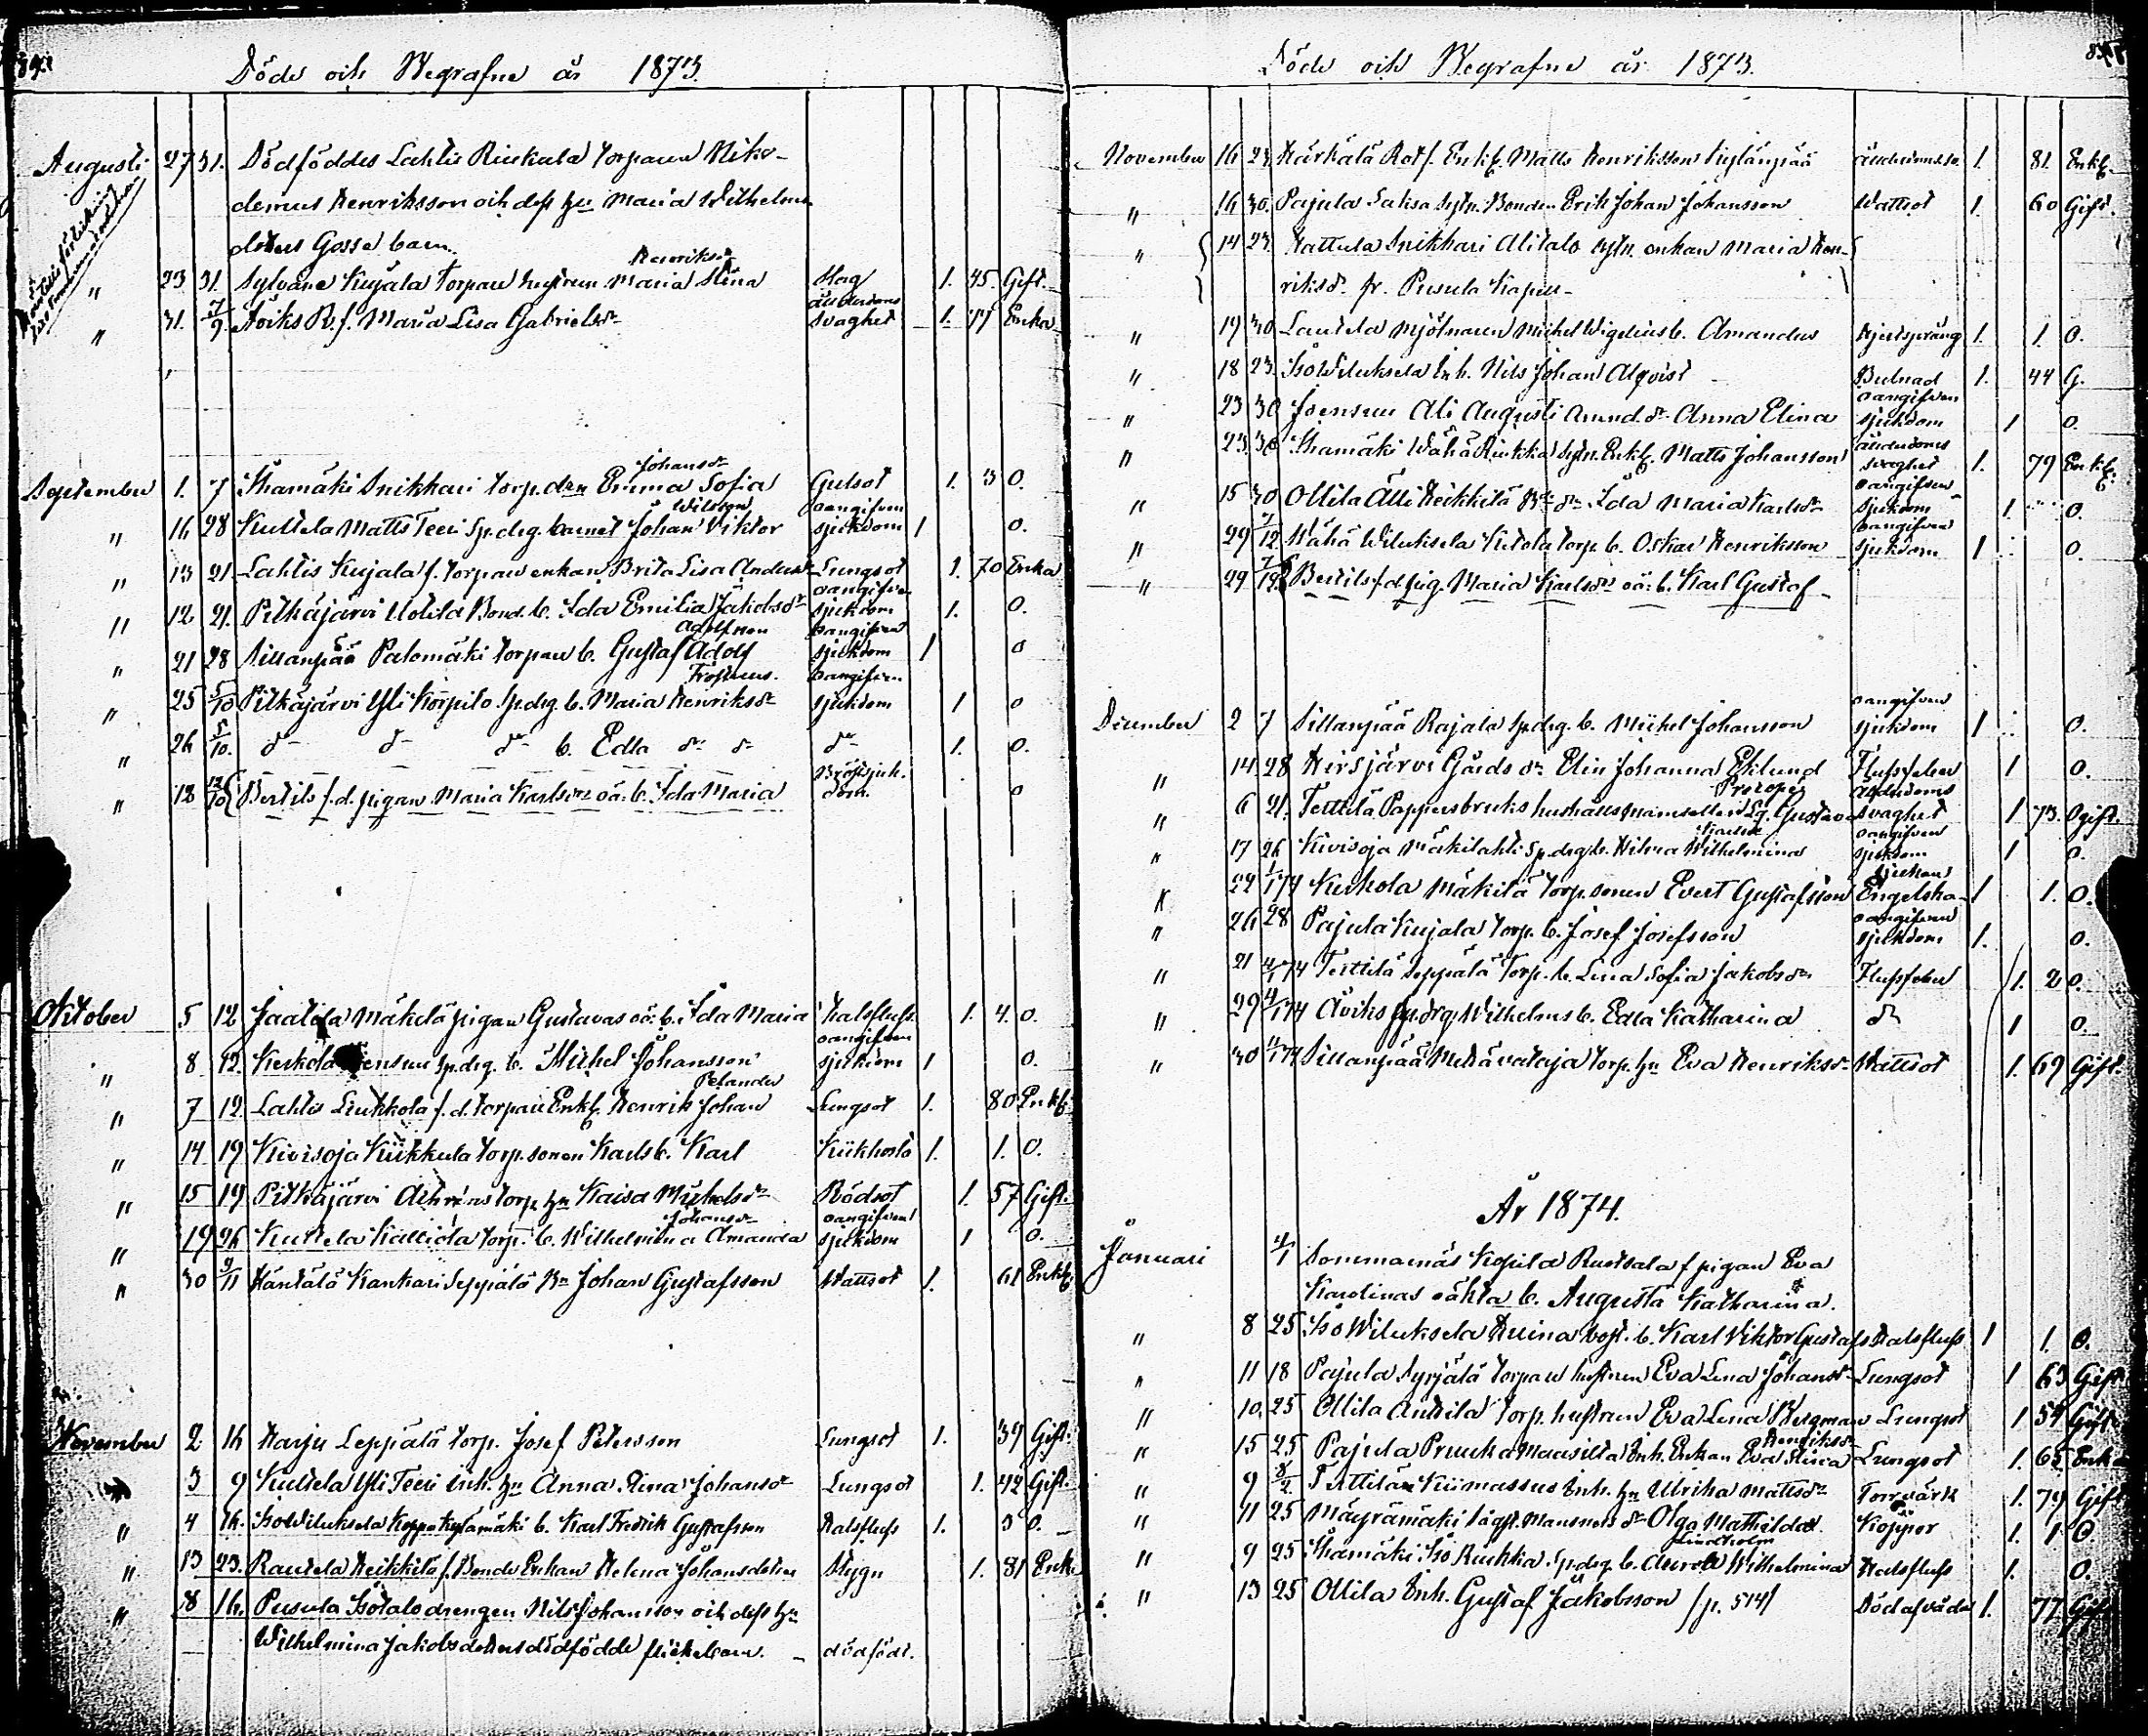 Döde och Begrafne år 1873.
Augusti 27 31. Dödföddes Lahtis Riukula torparen Niko-
demus Henriksson och dess hu Maria Wilhelmina
dotters Gosse barn.
Henriksdr
" 23 31. Sylvänä Kujala torpare hustrun Maria Stina Slag 1. 45. Gift.
" 31. 7/9 Äviks R. f. Maria Lisa Gabrielsdr ålderdoms svaghet 1. 77 Enka
Johansdr
September 1. 7 Thamäki Snikkari torp. dran Emma Sofia Gulsot 1. 3 0.
Wilsson
" 16 28 Kuttela Matts Teeri Sp.drg. barnet Johan Viktor oangifven sjukdom 1 0.
" 13 21 Lahtis Kujala f. torpare enkan Brita Lisa Andersdr Lungsot 1. 70 Enka
" 12 21. Pitkäjärvi Uotila Bond. b. Ida Emilia Jakobsdr oangifven sjukdom 1. 0.
Adolfsson
" 21 28 Sillanpää Palomäki torpare b. Gustaf Adolf oangifven sjukdom 1 0
Frosterus.
" 25 5/10 Pitkäjärvi Yli Körpilo Sp.drg. b. Maria Henriksdr oangifven sjukdom 1 0
" 26 5/10. dr dr dr b. Edla dr dr dr 1. 0.
" 18 12/10 Bertils f.d. pigan Maria Karlsdrs oä. b. Ida Maria Bröstsjuk. dom. 0
October 5 12 Jaatila Mäkelä pigan Gustavas oä. b. Ida Maria Halsfluss 1. 4. 0.
" 8 12. Keskola Joensuu Sp.drg. b. Michel Johansson oangifven sjukdom 1 0.
Pelander
" 7 12. Lahtis Liukkola f.d. torpare Enkl. Henrik Johan Lungsot 1. 80 Enkl.
" 14 19 Kivisoja Kiikkula torp. sonen Karls b. Karl Kikhosta 1. 1. 0.
" 15 19 Pitkäjärvi Ahrens torp. hu Kaisa Michelsdr Rödsot 1. 57 Gift.
Johansdr
" 19 26 Kuttela Källiola torp. b. Wilhelmina Amanda oangifven sjukdom 1 0.
" 30 9/11 Häntälä Kankari Seppälä Bn Johan Gustafsson Vattsot 1. 61 Enkl.
November 2 16 Harju Leppälä torp. Josef Petersson Lungsot 1. 39 Gift.
3 9 Kuttela Yli Teeri Inh. hu Anna Stina Johansdr Lungsot 1. 42 Gift.
" 4 16. Iso Wiluksela Keppo Kylämäki b. Karl Fredrik Gustafsson Halsfluss 1. 3 0.
" 13 23. Rautela Heikkilä f. Bonde Enkan Helena Johansdotter Stygn 1. 81 Enka
" 8 16. Pusula Isotalo drengen Nils Johansson och dess hu
Wilhelmina Jakobsdotters dödfödde flickebarn. dödfödt.
Döde och Begrafne år 1873.
November 16 23 Härkälä Rotf. Enkl. Matts Henriksson Kylänpää 1. 81. Enkl.
" 16 30. Pajula Saksa Sytn. Bonden Erik Johan Johansson Wattsot 1. 60 Gift.
" 14 23. Hattula Snikkari Alitalo sytn. enkan Maria Hen-
riksdr fr. Pusula
" 19 30 Lautela Mjölnaren Michel Wigelius b. Amandus Hjertspräng 1. 1. 0.
" 18 23. Iso Wiluksela Inh. Nils Johan Alqvist Bulnad 1. 44 G.
" 23 30 Joensuu Ali Augusti dr Anna Elina oangifven sjukdom 1 0.
" 23. 30 Thamäki Wähä Riukka Sytn. Enkl. Matts Johansson ålderdoms svaghet 1. 79 Enkl.
" 15 30 Ollila Ålli Heikkilä Bn dr Ida Maria Karlsdr oangifven sjukdom 1. 0.
" 29 7/12 Wähä Wiluksela Kutola torp. b. Oskar Henriksson oangifven sjukdom 1 0.
" 29 7/12 Bertils f.d. pig. Maria Karlsdrs oä. b. Karl Gustaf
December 2 7 Sillanpää Rajala Sp.drg. b. Michel Johansson oangifven sjukdom 1 0.
" 14. 28 Hirsjärvi Gårds dr Elin Johanna Eklund Flussfeber 1 0.
Procopé
" 6 21. Terttilä Pappersbruks hushållsmamsellen Lg. Gustava ålderdoms svaghet 1 73. Ogift.
" 17 26 Kivisoja Mäkilahti Sp.drg. b. Hilma Wilhelmina oangifven sjukdom 1 0.
" 22 1/1 74 Keskola Mäkilä torp. sonen Evert Gustafsson Engelska sjukan 1 1. 0.
" 26 28 Pajula Kujala torp. b. Josef Josefsson oangifven sjukdom 1. 0.
" 21 4/1 74 Terttilä Seppälä torp. b. Lina Sofia Jakobsdr Flussfeber 1. 2 0.
" 29 4/1 74 Äviks Sp.drg. Wilhelms b. Edla Katharina dr 1 0.
" 30 11/1 74 Sillanpää Metsävataja torp. hu Eva Henriksdr Wattsot 1. 69 Gift.
År 1874.
Januari 4/1 Sommarnäs Kopila Ruotsala f pigan Eva
Karolinas oäkta b. Augusta Katharina.
" 8 25 Iso Wiluksela b. Karl Viktor Gustafs Halsfluss 1 1. 0.
" 11 18 Pajula Syrjälä torpare hustrun Eva Lena Johansdr Lungsot 1 63 Gift.
" 10. 25 Ollila Anttila torp. hustrun Eva Lena Bergman Lungsot 1 54 Gift.
Henriksdr
" 15 25 Pajula Pruuka Maasilta Inh. Enkan Eva Stina Lungsot 1. 65 Enka
" 9 8/2. Terttilä Kiimassuo Inh. hu Ulrika Mattsdr Torrvärk 1. 79 Gift
" 11 25 Mäyrämäki dr Olga Mathilda Koppor 1. 1 0.
Lindholm
" 9 25 Thamäki Iso Riukka Sp.drg. b. Aurora Wilhelmina Halsfluss 1. 0.
" 13 25 Ollila Inh. Gustaf Jakobsson /p. 514/ Död af våda 1. 77. Gift